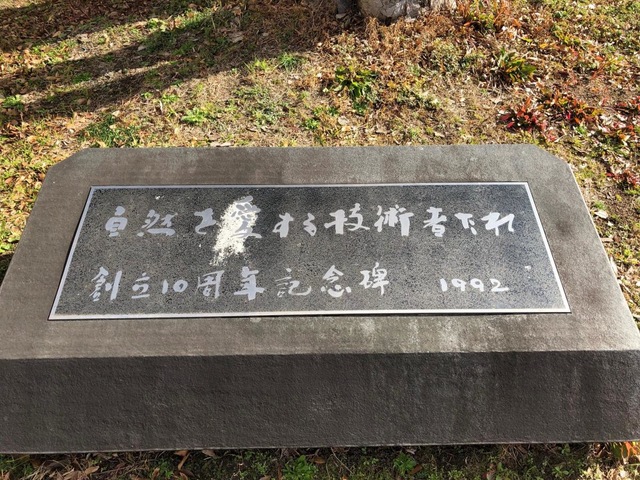 自然を愛する技術者たれ
創立10周年記念碑 1992